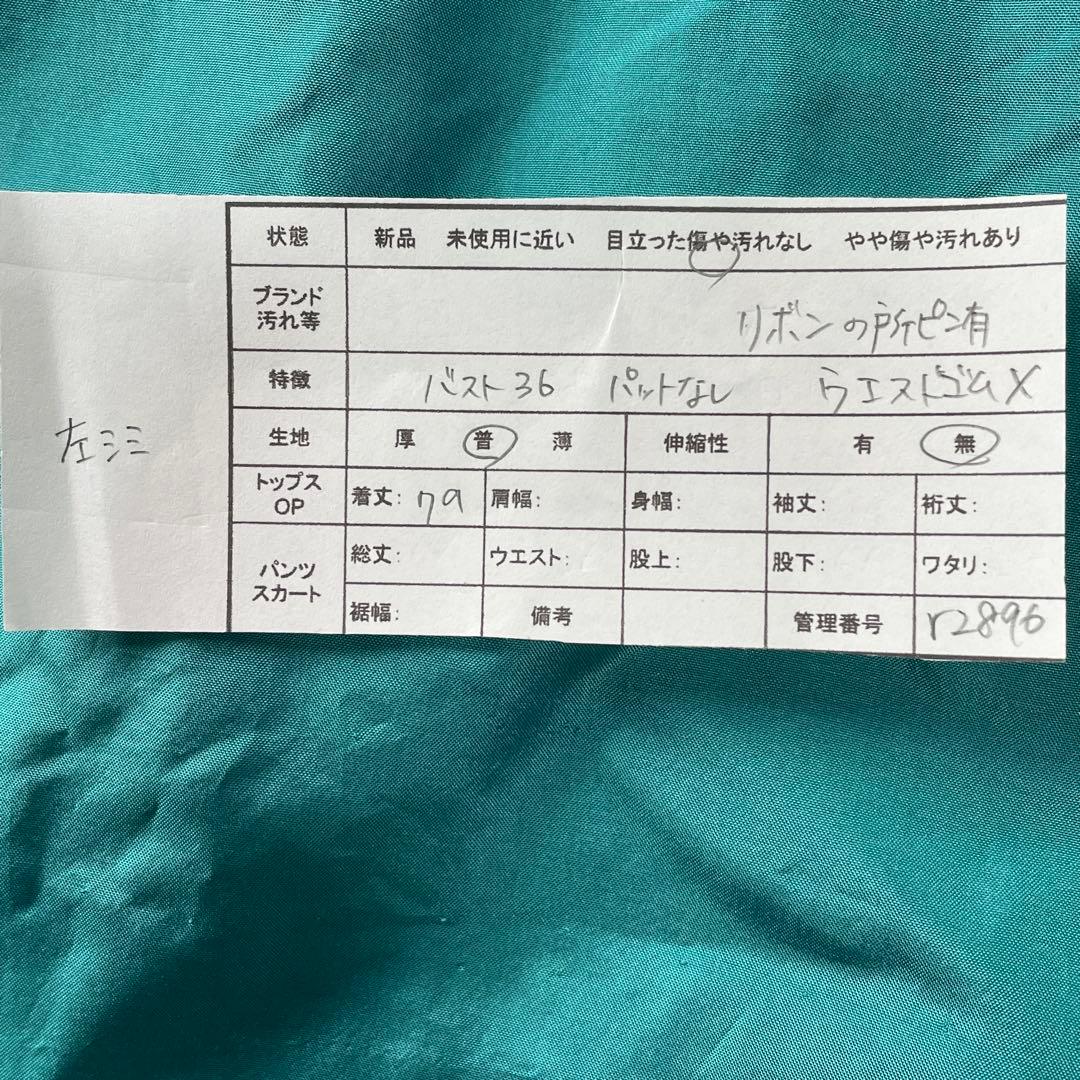 状態 新品 未使用に近い 目立った傷や汚れなし やや傷や汚れあり
ブランド
汚れ等 リボンの所ピン有
特徴 バスト36 パットなし ウエストゴム✕
左ミミ
生地 厚 普 薄 伸縮性 有 無
トップス
OP 着丈: 79 肩幅: 身幅: 袖丈: 裄丈:
パンツ
スカート 総丈: ウエスト: 股上: 股下: ワタリ:
裾幅: 備考 管理番号 r2896